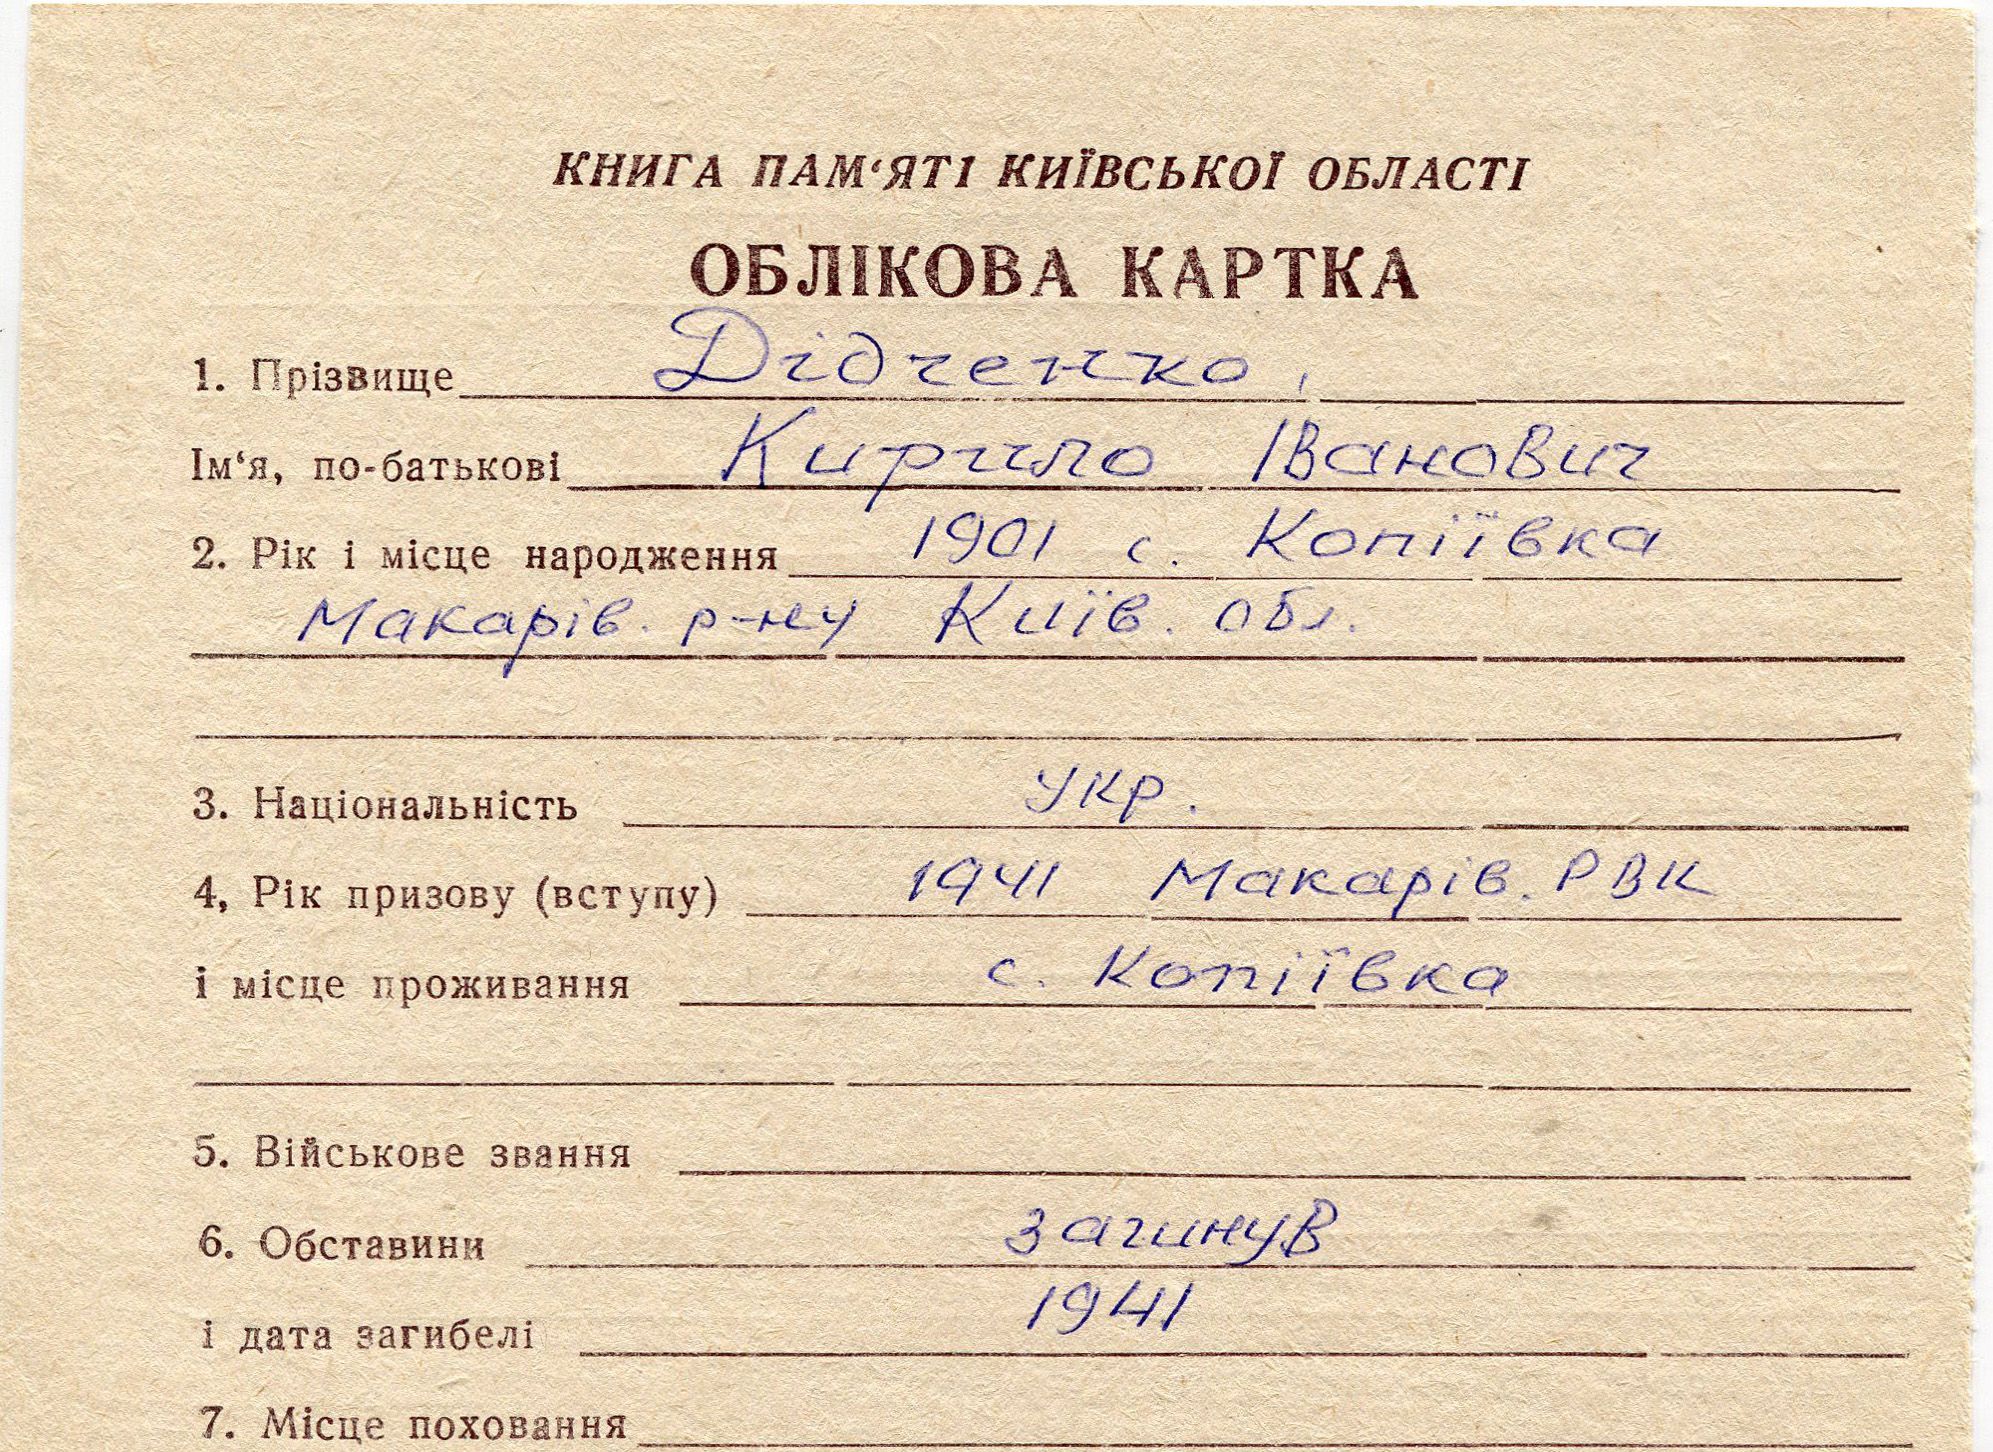 КНИГА ПАМ‘ЯТІ КИЇВСЬКОЇ ОБЛАСТІ
ОБЛІКОВА КАРТКА
1. Прізвище Дідченко,
Ім‘я, по-батькові Кирило Іванович
2. Рік і місце народження 1901 с. Копіївка
Макарів. р-ну Київ. обл.
3. Національність укр.
4, Рік призову (вступу) 1941 Макарів. РВК
і місце проживання с. Копіївка
5. Військове звання
6. Обставини загинув
і дата загибелі 1941
7. Місце поховання